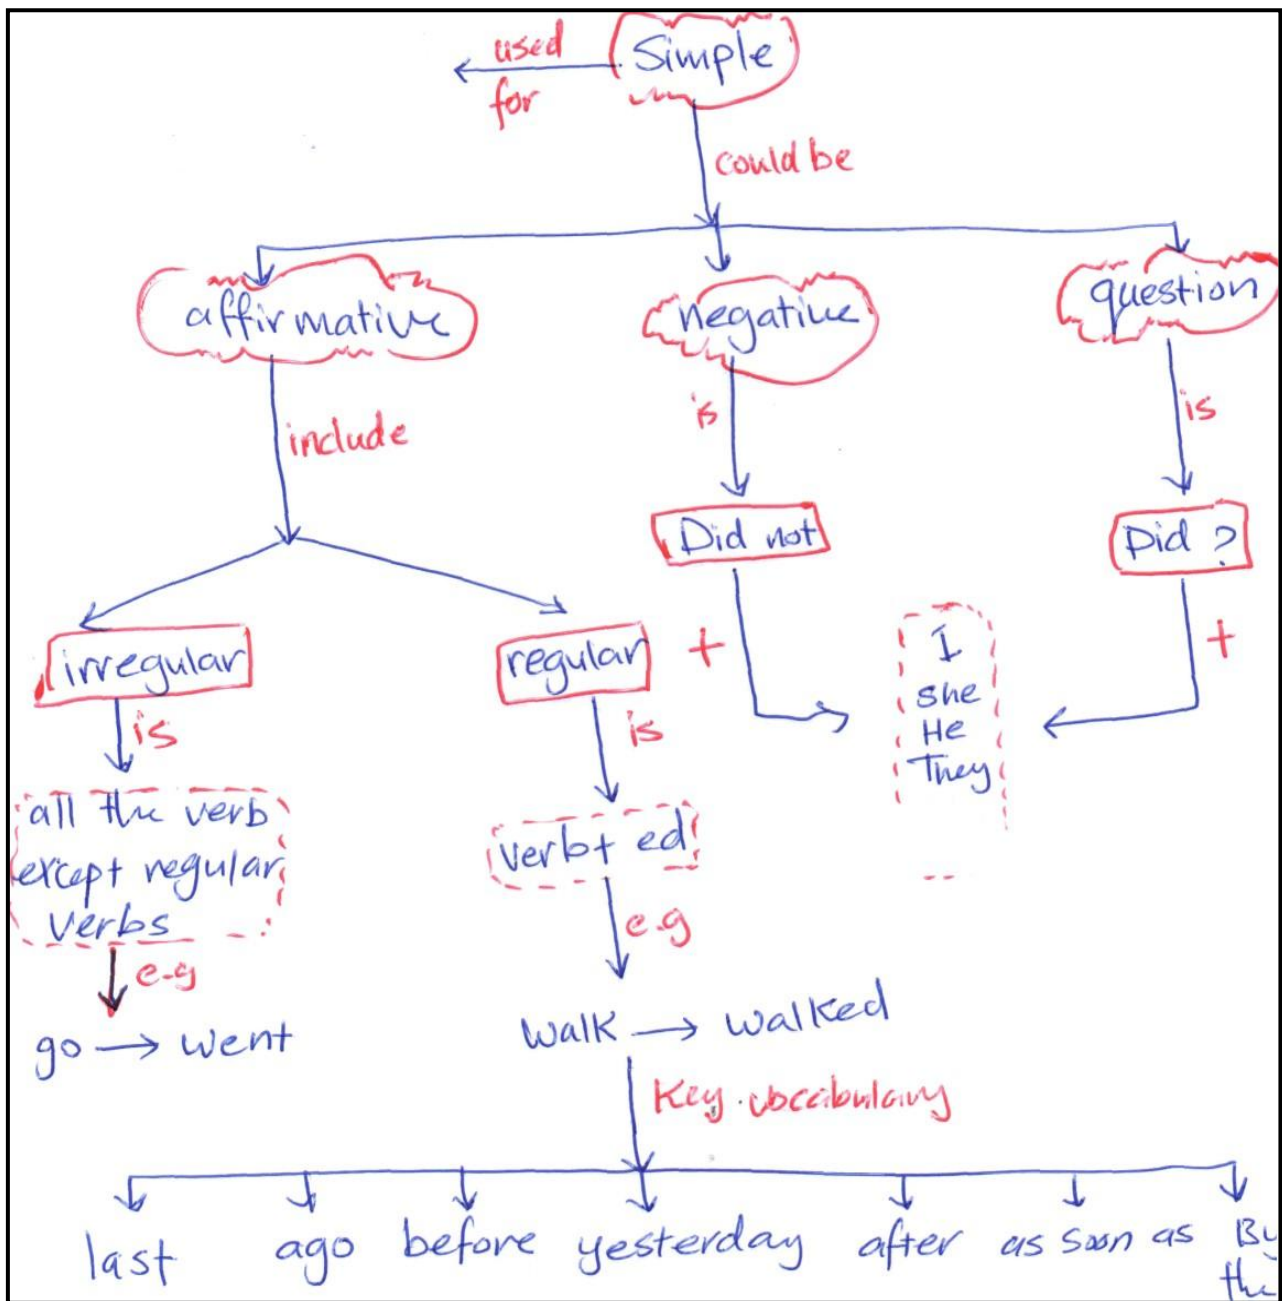 used
for
Simple
could be
affirmative
negative
question
include
is
is
Did not
Did ?
irregular
regular
+
+
I
she
He
They
is
is
all the verb
except regular
verbs
verb+ ed
e.g
e.g
go → went
walk → walked
Key
last
ago
before
yesterday
after
as soon as
By
the